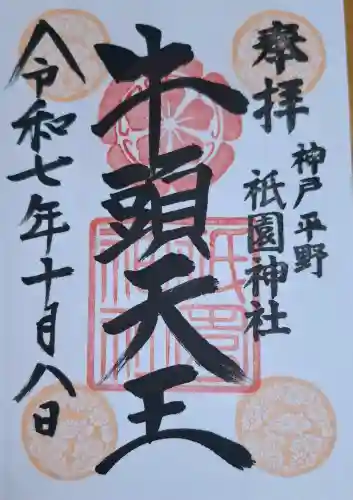 奉拝
神戸平野
祇園神社
牛頭天王
令和七年十月八日
祇園
神社